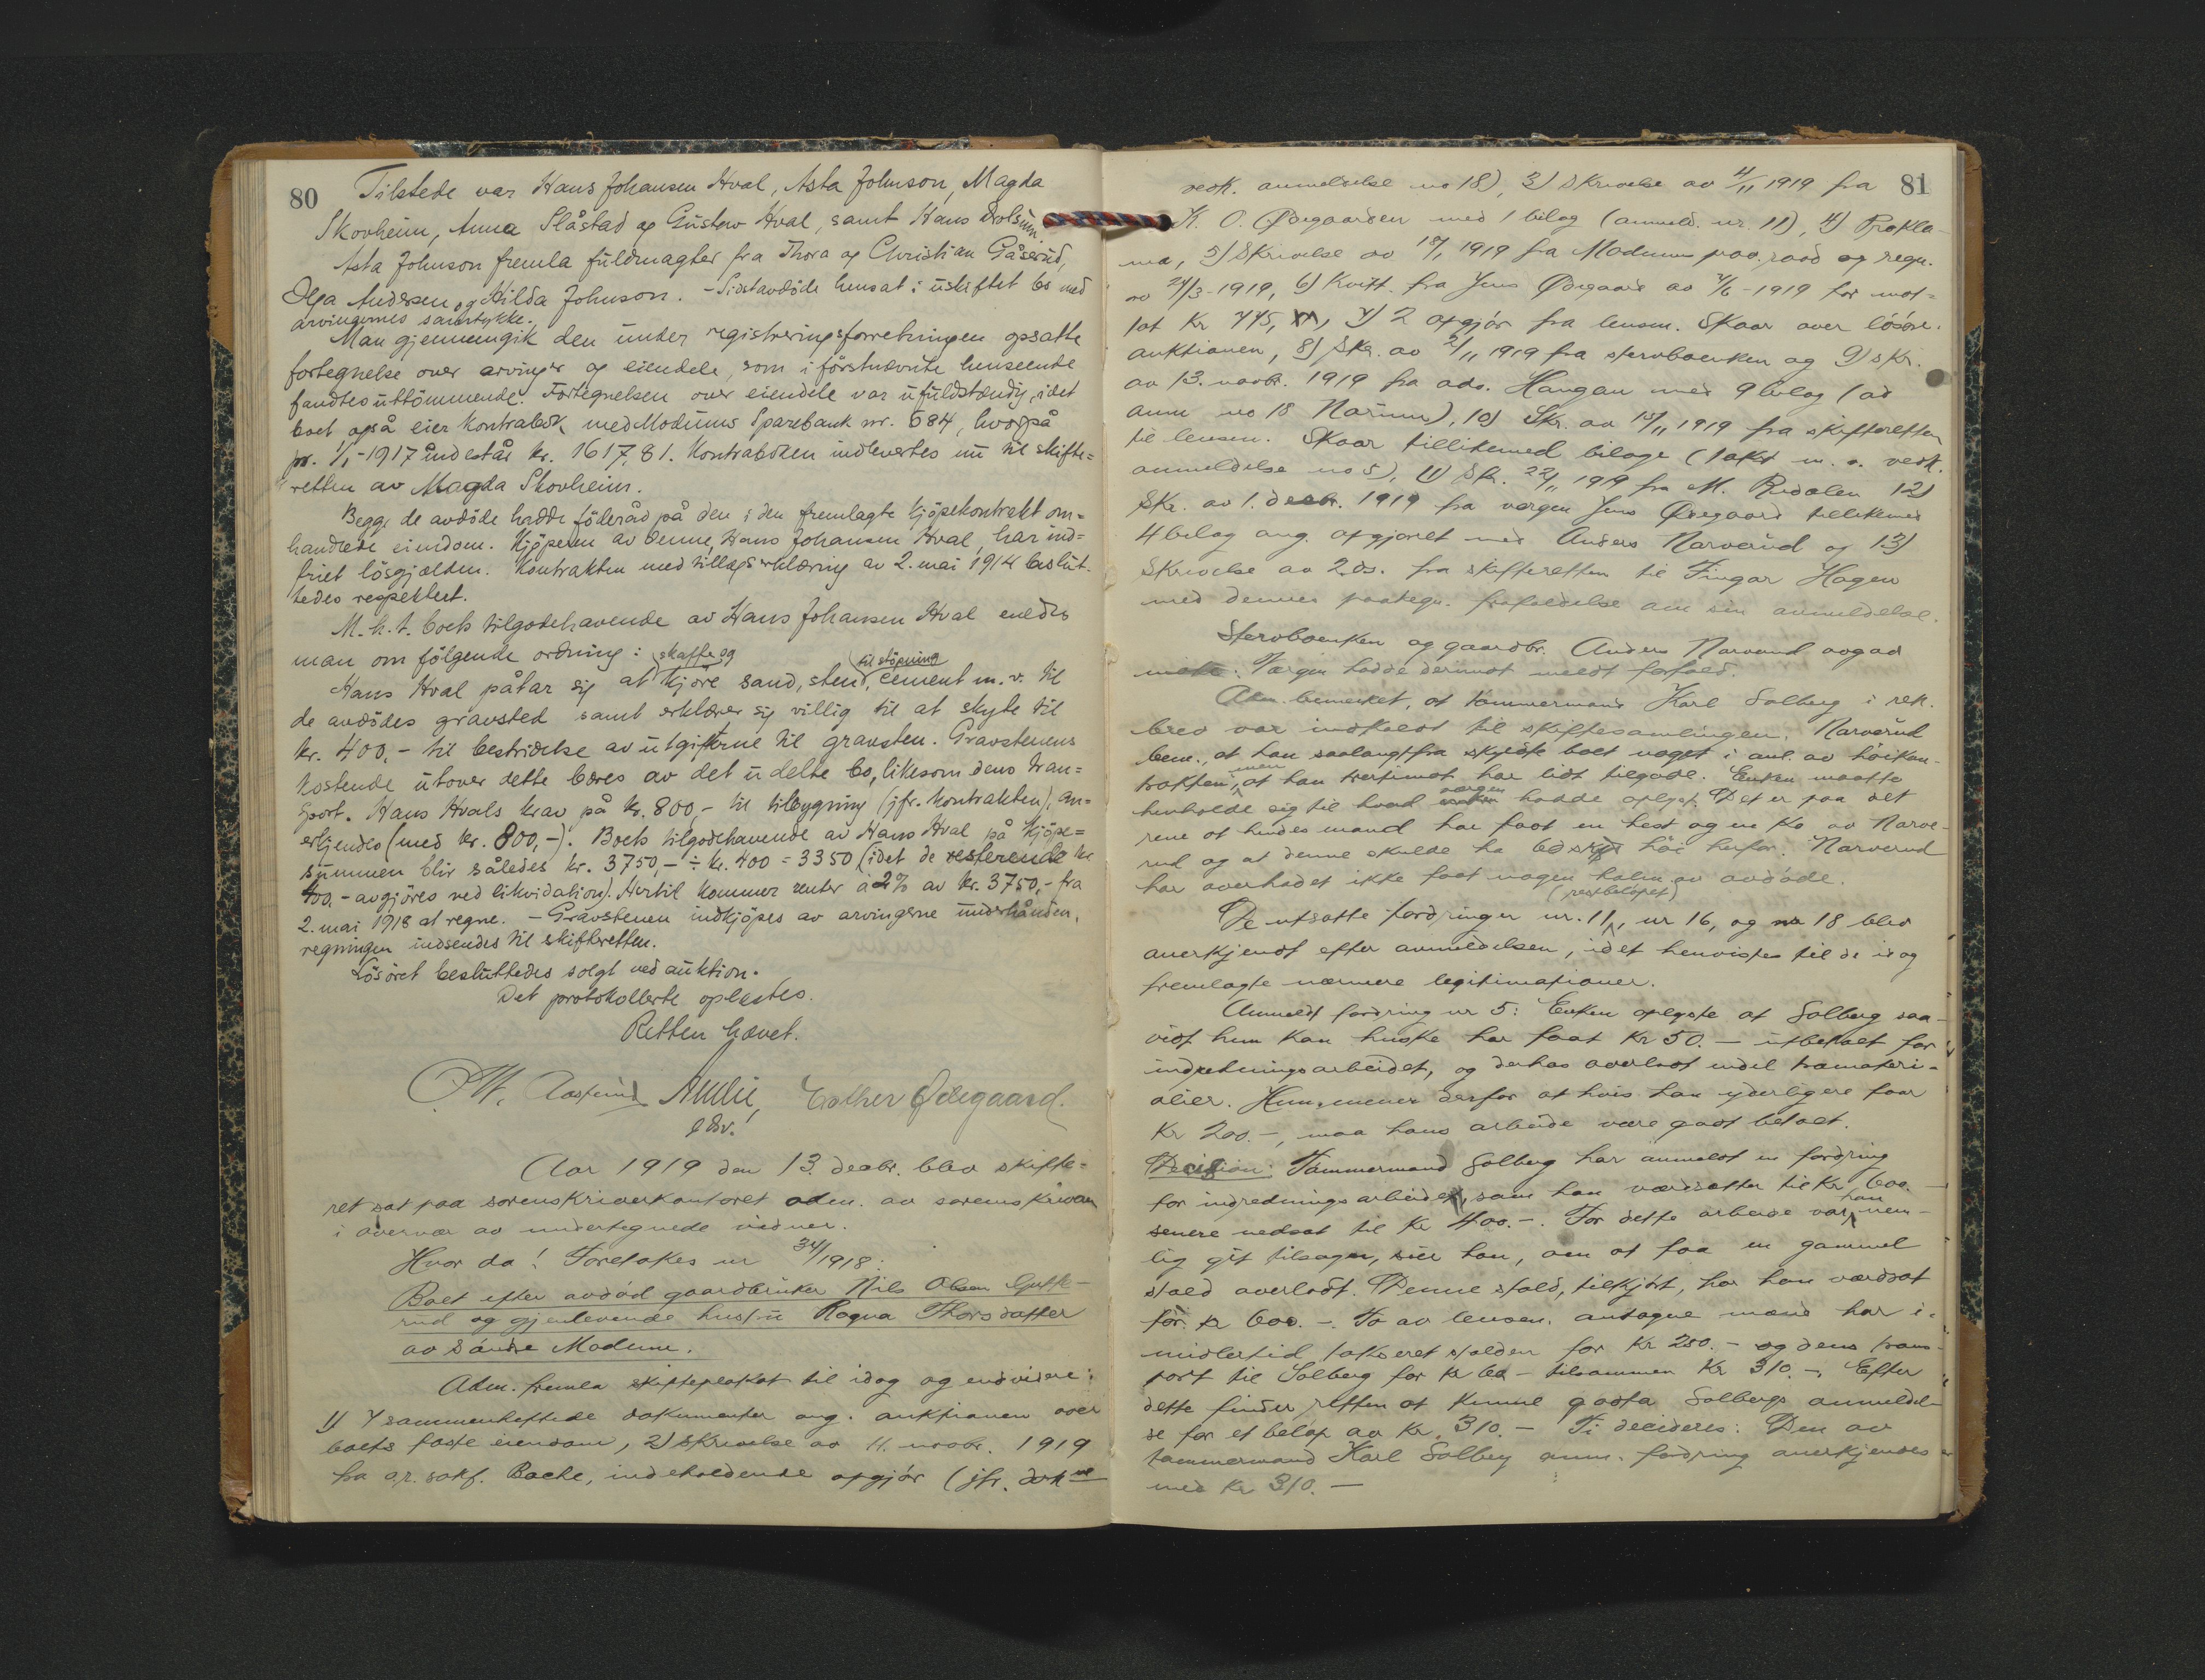 80
Tilstede var Hans Johansen Hval, Asta Johnson, Magda
Skovheim, Anna Slåstad og Gustav Hval, samt Hans Dolsün.
Asta Johnson fremla fuldmagter fra Thora og Christian Gåserud,
Olga Andersen og Hilda Johnson. – Sidstavdöde hensat i uskiftet bo med
arvingernes samtykke.
Man gjennemgik den under registreringsforretningen opsatte
fortegnelse over arvinger og eiendele, som i förstnævnte henseende
fandtes uttömmende. Fortegnelsen over eiendele var ufuldstændig, idet
boet også eier kontrabok med Modums Sparebank nr. 684, hvorpå
pr. 1/1-1917 indestår kr. 1617,81. Kontraboken indlevertes nu til skifte=
retten av Magda Skovheim.
Begge de avdöde hadde föderåd på den i den fremlagte kjöpekontrakt om=
handlede eiendom. Kjöperen av denne, Hans Johansen Hval, har ind=
friet lösgjælden. Kontrakten med tillægserklæring av 2. mai 1914 beslut.
tedes respektert.
M.h.t. boets tilgodehavende av Hans Johansen Hval enedes
man om fölgende ordning:
Hans Hval påtar sig at skaffe og kjöre sand, sten, til stöpning cement m.v. til
de avdödes gravsted samt erklærer sig villig til at skyte til
kr. 400,- til bestridelse av utgifterne til gravsten. Gravstenens
kostende utover dette bæres av det udelte bo, likesom dens tran=
sport. Hans Hvals krav på kr. 800,- til tilbygning (jfr. kontrakten), an=
erkjendes (med kr. 800,-). Boets tilgodehavende av Hans Hval på kjöpe=
summen blir således kr. 3750,- ÷ kr. 400 = 3350 (idet de resterende kr
400,- avgjöres ved likvidation). Hertil kommer renter à 2% av kr. 3750,- fra
2. mai 1918 at regne. – Gravstenen indkjöpes av arvingerne underhånden,
regningen indsendes til skifteretten.
Lösöret besluttedes solgt ved auktion.
Det protokollerte oplæstes.
Retten hævet.
Esther Ødegaard.
Aar 1919 den 13. decbr. blev skifte=
ret sat paa sorenskriverkontoret adm. av sorenskriveren
i overvær av undertegnede vidner.
Hvor da! Foretokes nr 34/1918:
Boet efter avdöd gaardbruker Nils Olsen Gutte-
rud og gjenlevende hustru Ragna Thorsdatter
av söndre Modum.
Adm. fremla skifteplakat til idag og endvidere:
1) 4 sammenheftede dokumenter ang. auktionen over
boets faste eiendom, 2) skrivelse av 11. novbr. 1919
fra o.r. sakf. Bache, indeholdende opgjör (jfr. dok
81
vedk. anmeldelse no 18), 3) skrivelse av 4/11 1919 fra
K. O. Ødegaarden med 1 bilag (anmeld. nr. 11), 4) Prokla-
ma, 5) Skrivelse av 1919 fra Modums raad og regn.
av 24/3-1919, 6) Kvitt. fra Jens Ødegaard av /6-1919 for mot=
tat Kr 445, 7) 2 opgjör fra lensm. Skaar over lösöre.
auktionen, 8) Skr. av 2/11 1919 fra stervboenken og 9) skr.
av 13. novbr. 1919 fra adv. Haugan med 9 bilag (ad
anm no 18 Narum), 10) Skr. av 15/11 1919 fra skifteretten
til lensm. Skaar tillikemed bilage (takst m.v. vedk.
anmeldelse no 5), 11) Skr. 22/11 1919 fra M. 12)
Skr. av 1. decbr. 1919 fra vergen Jens Ødegaard tillikemed
4 bilag ang. opgjöret med Anders Narverud og 13)
Skrivelse av 2. ds. fra skifteretten til Fingar Hagen
med dennes paategn. frafaldelse om sin anmeldelse.
Stervboenken og gaardbr. Anders Narverud avgav
möte. Vergen hadde derimot meldt forfald.
Adm. bemerket, at tömmermand Karl Solberg i rek.
brev var indkaldt til skiftesamlingen. Narverud
bem., at han saalangtfra skyldte boet noget i anl. av höikon-
trakten, men at han tvertimot har litt tilgode. Enken maatte
henholde sig til hvad vergen hadde oplyst. Det er paa det
rene at hendes mand har faat en hest og en ko av Narve-
rud og at denne skulde ha 60 höi herfor. Narverud
har overhodet ikke faat nogen halm av avdöde.
De utsatte fordringer nr. 11 (restbelöpet), nr 16, og no 18 blev
anerkjendt efter anmeldelsen, idet henvistes til de idag
fremlagte nærmere legitimationer.
Anmeldt fordring nr 5: Enken oplyste at Solberg saa-
vidt hun kan huske har faat Kr 50.– utbetalt for
indredningsarbeidet, og derhos overladt endel tramateri-
alier. Hun mener derfor at hvis han yderligere faar
Kr 200.–, maa hans arbeide være godt betalt.
Decision: Tömmermand Solberg har anmeldt en fordring
for indredningsarbeidet, som han værdsætter til Kr 600.–
senere nedsat til Kr 400.–. For dette arbeide var han nem-
lig git tilsagn, sier han, om at faa en gammel
stald overladt. Denne stald, tilkjört, har han værdsat
for kr 600.–. To av lensm. antagne mænd har i-
midlertid taksert stalden for Kr 250.– og dens trans-
port til Solberg for kr 60.– tilsammen Kr 310.–. Efter
dette finder retten at kunne godta Solbergs anmeldel-
se for et belöp av Kr. 310.– Ti decideres: Den av
tömmermand Karl Solberg anm. fordring anerkjendes
med Kr 310.–